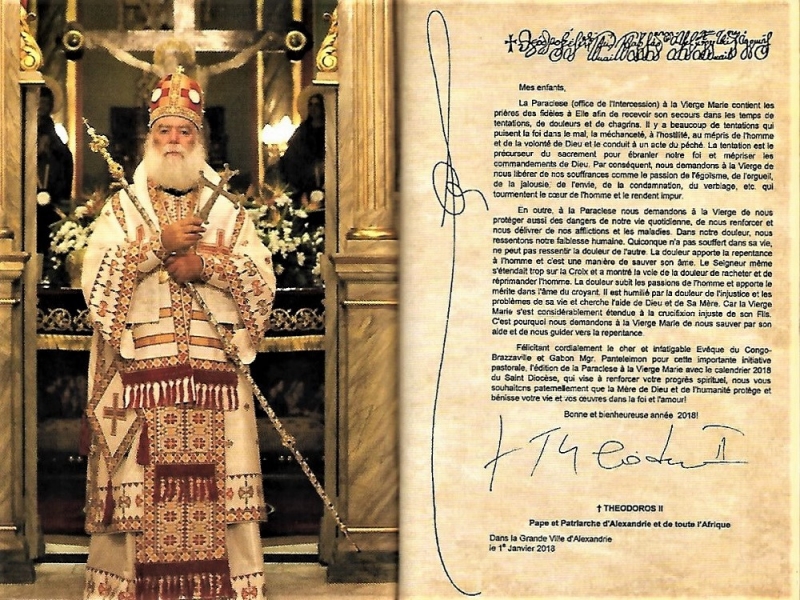 Mes enfants,
La Paraclese (office de l'Intercession) à la Vierge Marie contient les
prières des fidèles à Elle afin de recevoir son secours dans les temps de
tentations, de douleurs et de chagrins. Il y a beaucoup de tentations qui
puisent la foi dans le mal, la méchanceté, à l'hostilité, au mépris de l'homme
et de la volonté de Dieu et le conduit à un acte du péché. La tentation est le
précurseur du sacrement pour ébranler notre foi et mépriser les
commandements de Dieu. Par conséquent, nous demandons à la Vierge de
nous libérer de nos souffrances comme le passion de l'égoïsme, de l'orgueil,
de la jalousie, de l'envie, de la condamnation, du verbiage, etc. qui
tourmentent le cœur de l'homme et le rendent impur.
En outre, à la Paraclese nous demandons à la Vierge de nous
protéger aussi des dangers de notre vie quotidienne, de nous renforcer et
nous délivrer de nos afflictions et les maladies. Dans notre douleur, nous
ressentons notre faiblesse humaine. Quiconque n'a pas souffert dans sa vie,
ne peut pas ressentir la douleur de l'autre. La douleur apporte la repentance
à l'homme et c'est une manière de sauver son âme. Le Seigneur même
s'étendait trop sur la Croix et a montré la voie de la douleur de racheter et de
réprimander l'homme. La douleur subit les passions de l'homme et apporte le
mérite dans l'âme du croyant. Il est humilié par la douleur de l'injustice et les
problèmes de sa vie et cherche l'aide de Dieu et de Sa Mère. Car la Vierge
Marie s'est considérablement étendue à la crucifixion injuste de son Fils.
C'est pourquoi nous demandons à la Vierge Marie de nous sauver par son
aide et de nous guider vers la repentance.
Félicitant cordialement le cher et infatigable Evêque du Congo-
Brazzaville et Gabon Mgr. Panteleimon pour cette importante initiative
pastorale, l'édition de la Paraclese à la Vierge Marie avec le calendrier 2018
du Saint Diocèse, qui vise à renforcer votre progrès spirituel, nous vous
souhaitons paternellement que la Mère de Dieu et de l'humanité protège et
bénisse votre vie et vos œuvres dans la foi et l'amour!
Bonne et bienheureuse année 2018!
† Theodoros II
† THEODOROS II
Pape et Patriarche d'Alexandrie et de toute l'Afrique
Dans la Grande Ville d'Alexandrie
le 1° Janvier 2018